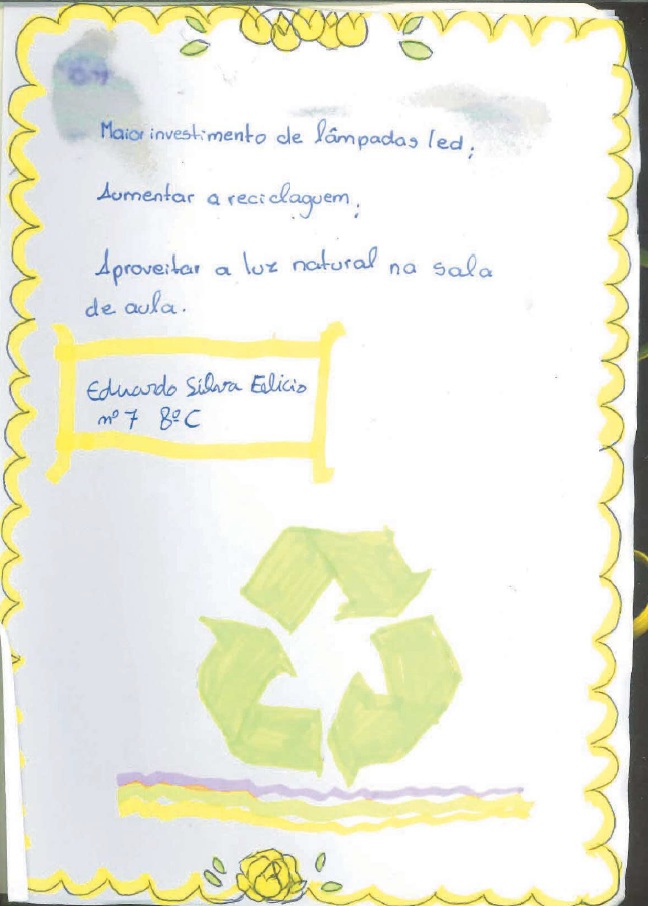 Maior investimento de lâmpadas led;
Aumentar a reciclaguem;
Aproveitar a luz natural na sala
de aula.
Eduardo Silva Felicio
nº 7 8º C